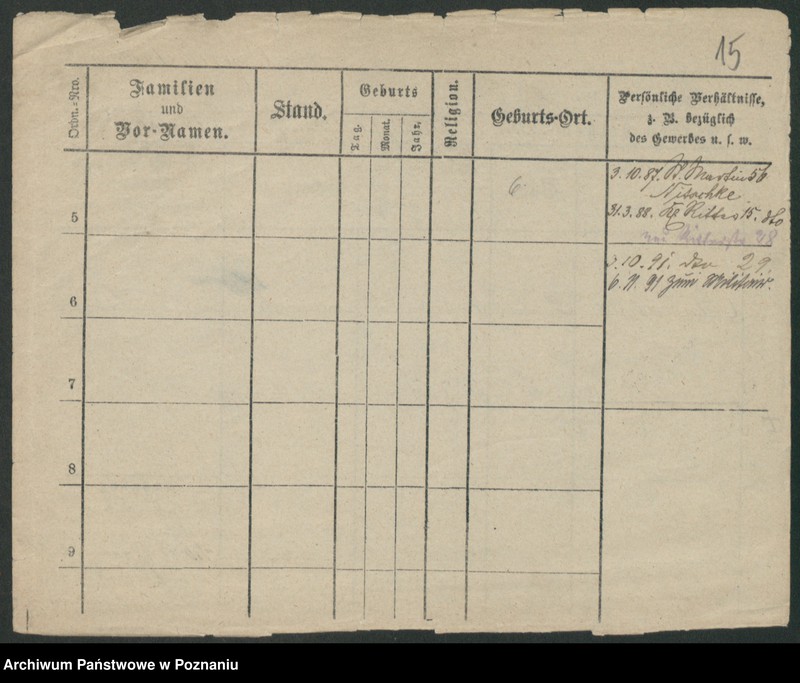 15
Ordn.=Nro.
Familien
und
Vor-Namen.
Stand.
Geburts
Tag.
Monat.
Jahr.
Religion.
Geburts-Ort.
Persönliche Verhältnisse,
z. B. bezüglich
des Gewerbes u. s. w.
5
6
3. 10. 87. St. Martin 56
Nitschke
31. 3. 88. Kl Ritter 15. dto
28
6
10. 91. dto 29.
6. 11. 91 zum Militair.
7
8
9
Archiwum Państwowe w Poznaniu